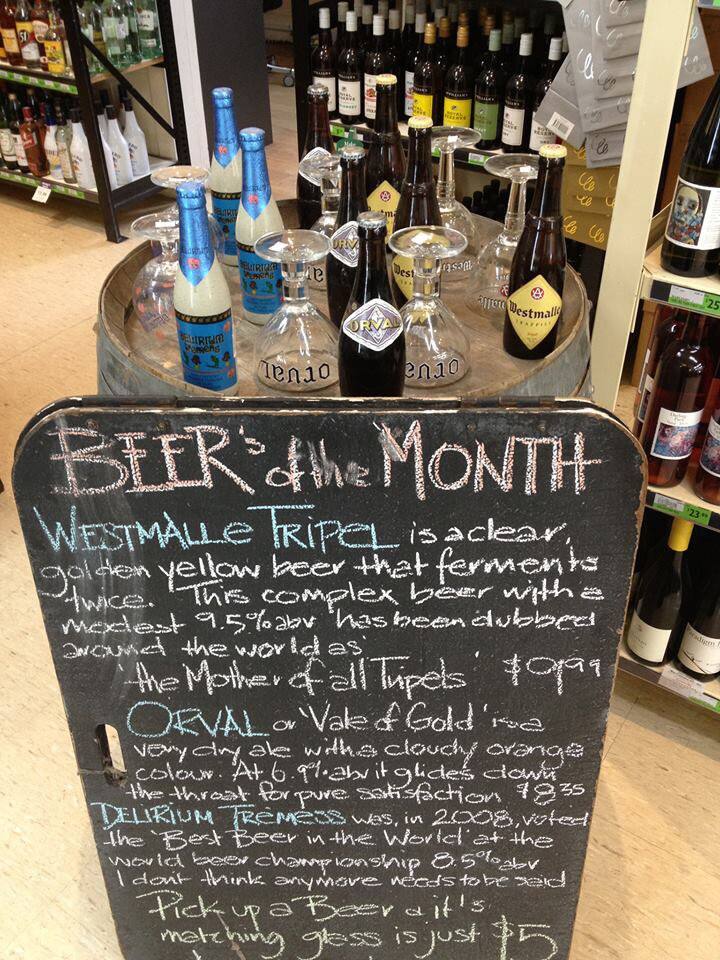 ORVAL
Westmalle
TRAPPIST
DELIRIUM
tremens
orval
orval
BEER'S of the MONTH
WESTMALLE TRIPEL is a clear,
golden yellow beer that ferments
twice. This complex beer with a
modest 9.5% abv has been dubbed
around the world as
'the Mother of all Tripels'
ORVAL or 'Vale of Gold' is a
very dry ale with a cloudy orange
colour. At 6.9% abv it glides down
the throat for pure satisfaction $8.35
DELIRIUM TREMESS was, in 2008, voted
the 'Best Beer in the World' at the
world beer championship 8.5% abv
I dont think anymore needs to be said
Pick up a Beer & it's
matching glass is just $5